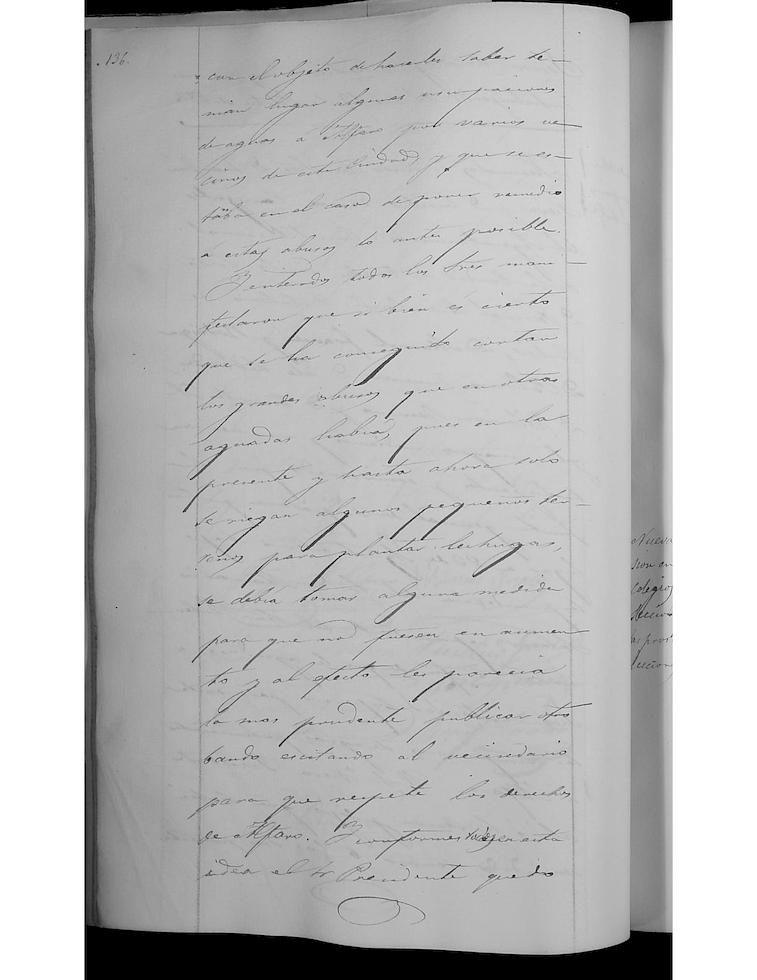 136.
con el objeto de hacerles saber te-
nian lugar algunas usurpaciones
de aguas á Alfaro por varios ve-
cinos de esta Ciudad, y que se es-
taba en el caso de poner remedio
á estos abusos lo antes posible.
Y enterados todos los tres mani-
festaron que si bien es cierto
que se ha conseguido cortar
los grandes abusos que en otras
aguadas habia, pues en la
presente y hasta ahora solo
se riegan algunos pequeños ter-
renos para plantar lechugas,
se debia tomar alguna medida
para que no fuesen en aumen-
to y al efecto les parecia
lo mas prudente publicar otro
bando escitando al vecindario
para que respete los derechos
de Alfaro. Y conformes todos en esta
idea el Sr Presidente quedó
Nueva
sion en
colegios